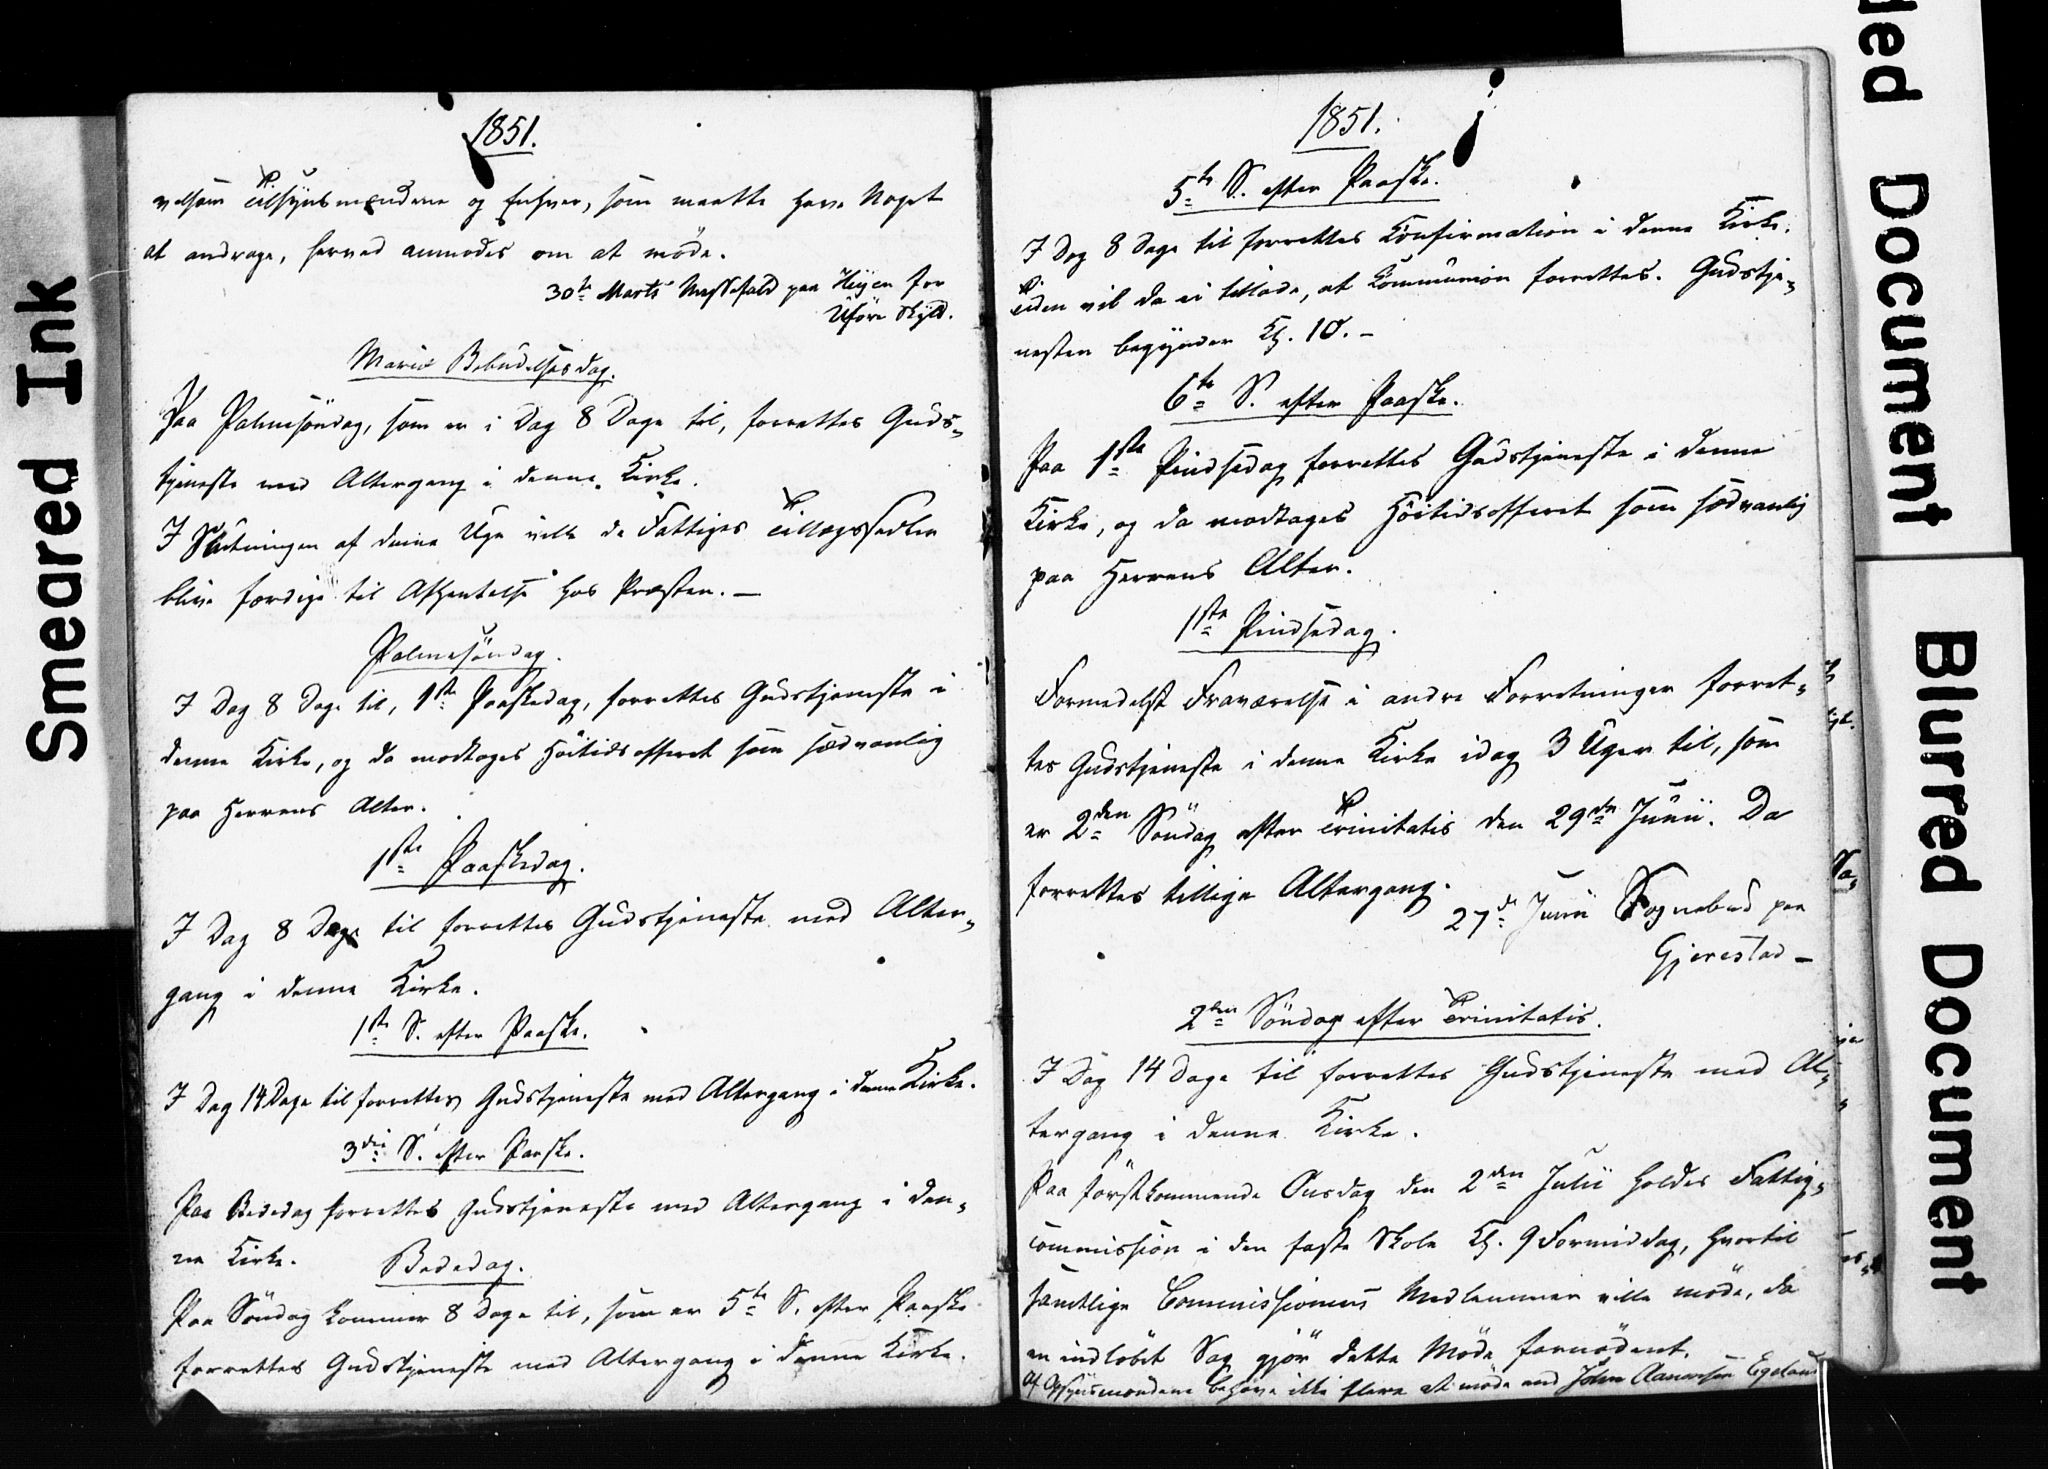 1851.
velsom Tilsynsmændene og Enhver, som maatte have Noget
at andrage, herved anmodes om at møde.
30te Marts Messefald paa
Uføre Skyld.
Mariæ Bebudelsesdag.
Paa Palmesöndag, som er i Dag 8 Dage til, forrettes Guds-
tjeneste med Altergang i denne Kirke.
I Slutningen af denne Uge ville de Fattiges Tillægssedler
blive færdige til Afhentelse hos Præsten. —
Palmesöndag.
I Dag 8 Dage til, 1ste Paaskedag, forrettes Gudstjeneste i
denne Kirke, og da modtages Höitidsofferet som sædvanlig
paa Herrens Alter.
1ste Paaskedag.
I Dag 8 Dage til forrettes Gudstjeneste med Alter-
gang i denne Kirke.
1ste S. efter Paaske.
I Dag 14 Dage til forrettes Gudstjeneste med Altergang i denne Kirke.
3die S. efter Paaske.
Paa Bededag forrettes Gudstjeneste med Altergang i den-
ne Kirke.
Bededag.
Paa Söndag kommer 8 Dage til, som er 5te S. efter Paaske
forrettes Gudstjeneste med Altergang i denne Kirke.
1851.
5te S. efter Paaske.
I Dag 8 Dage til forrettes Confirmation i denne Kirke.
Tiden vil da ei tillade, at Communion forrettes. Gudstje-
nesten begynder Kl. 10. —
6te S. efter Paaske.
Paa 1ste Pindsedag forrettes Gudstjeneste i denne
Kirke, og da modtages Höitidsofferet som sædvanlig
paa Herrens Alter.
1ste Pindsedag.
Formedelst Fraværelse i andre Forretninger forret-
tes Gudstjeneste i denne Kirke idag 3 Uger til, som
er 2den Söndag efter Trinitatis den 29de Junii. Da
forrettes tillige Altergang.
27de Junii Sognebud paa
Gjerestad —
2den Söndag efter Trinitatis.
I Dag 14 Dage til forrettes Gudstjeneste med Al-
tergang i denne Kirke.
Paa förstkommende Onsdag den 2den Julii holdes Fattig-
commission i den faste Skole Kl. 9 Formiddag, hvortil
samtlige Commissionens Medlemmer ville möde, da
en indlöbet Sag gjör dette Möde fornödent.
Af Opsynsmændene behöve ikke flere at möde end John Aanonsen Egeland
Smeared Ink
led Document
Blurred Document